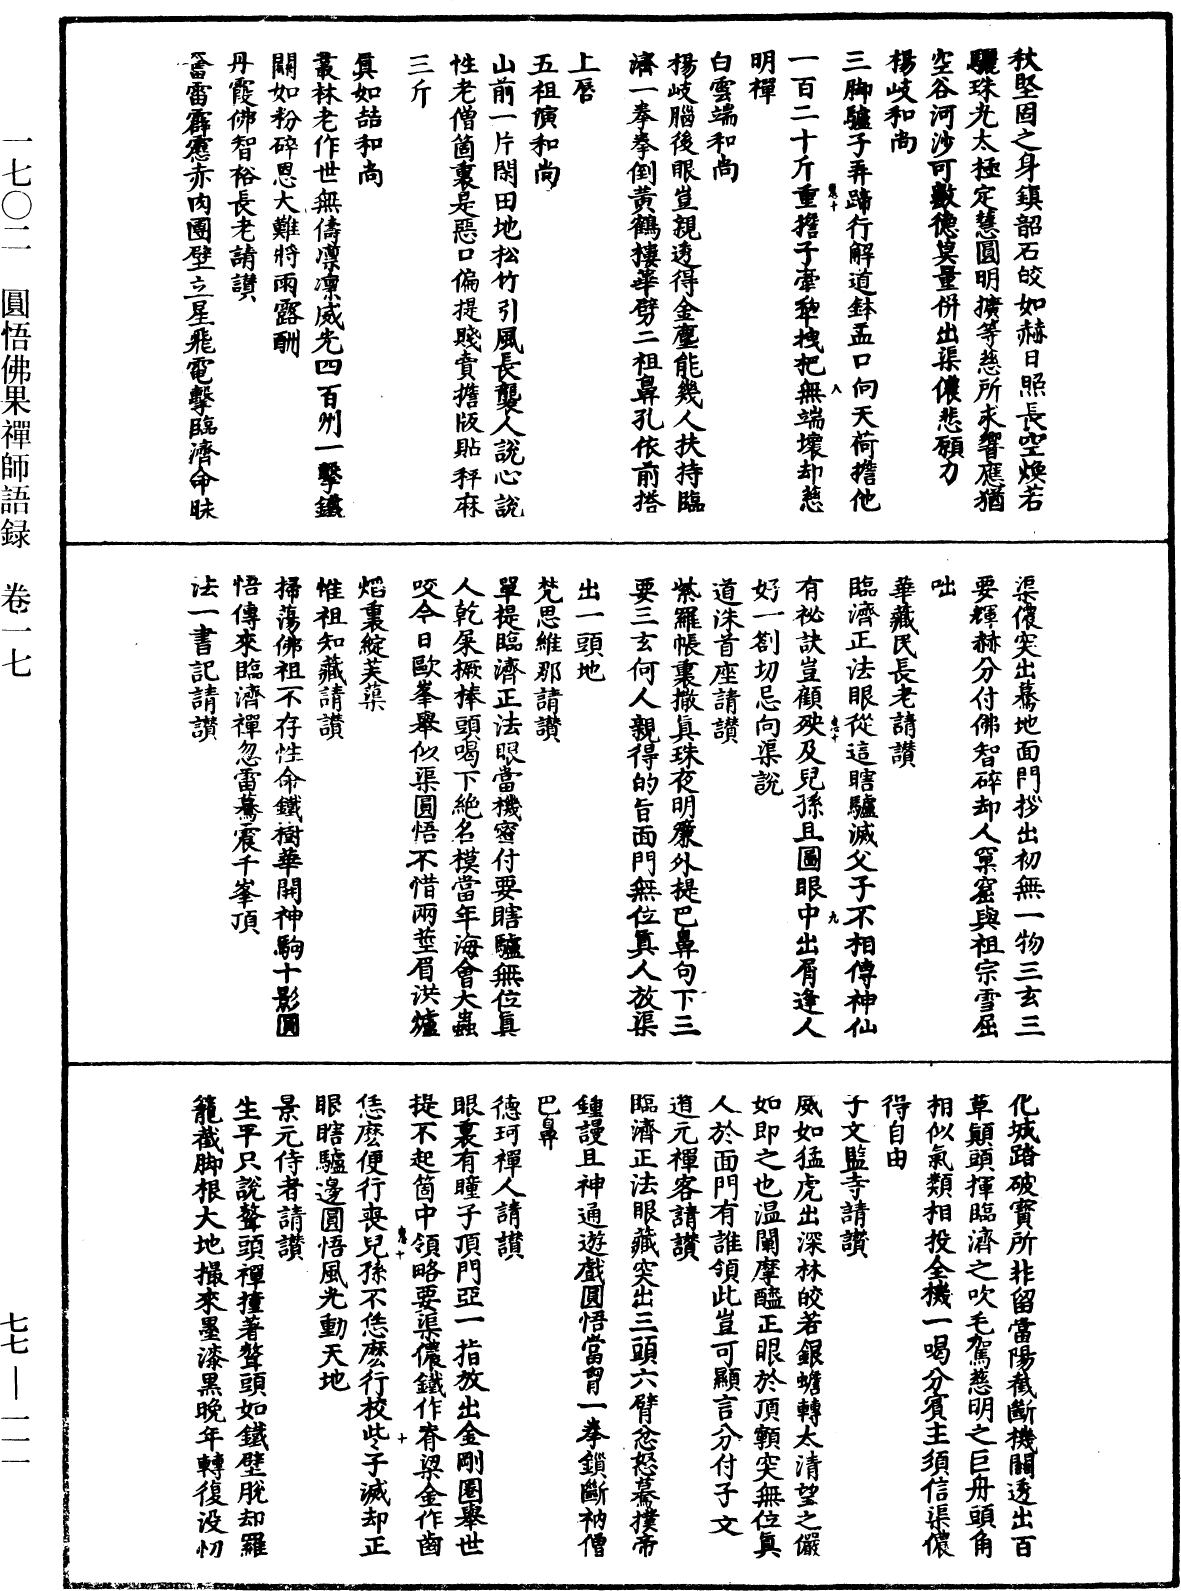 秋堅固之身鎮韶石皎如赫日照長空煥若
驪珠光太極定慧圓明擴等慈所求響應猶
空谷河沙可數德莫量併出渠儂悲願力
楊岐和尚
三脚驢子弄蹄行解道鉢盂口向天荷擔他
一百二十斤重擔子牽犂拽杷無端壞却慈
明禪
白雲端和尚
楊岐腦後眼豈親透得金塵能幾人扶持臨
濟一拳拳倒黃鶴樓華劈二祖鼻孔依前搭
上唇
五祖演和尚
山前一片閑田地松竹引風長襲人說心說
性老僧箇裏是惡口偏提賤賣擔版貼秤麻
三斤
真如喆和尚
叢林老作世無儔凛凛威光四百州一擊鐵
關如粉碎恩大難將雨露酬
丹霞佛智裕長老請讚
奮雷霹靂赤肉團壁立星飛電擊臨濟命昧
渠儂突出驀地面門拶出初無一物三玄三
要輝赫分付佛智碎却人窠窟與祖宗雪屈
咄
華藏民長老請讚
臨濟正法眼從這瞎驢滅父子不相傳神仙
有祕訣豈顧殃及兒孫且圖眼中出屑逢人
好一劄切忌向渠說
道洙首座請讚
紫羅帳裏撒真珠夜明簾外提巴鼻句下三
要三玄何人親得的旨面門無位真人放渠
出一頭地
梵思維那請讚
單提臨濟正法眼當機密付要瞎驢無位真
人乾屎橛棒頭喝下絶名模當年海會大蟲
咬今日歐峯舉似渠圓悟不惜兩莖眉洪爐
焰裏綻芙蕖
惟祖知藏請讚
掃蕩佛祖不存性命鐵樹華開神駒十影圓
悟傳來臨濟禪忽雷驀震千峯頂
法一書記請讚
化城踏破寶所非留當陽截斷機關透出百
草顛頭揮臨濟之吹毛駕慈明之巨舟頭角
相似氣類相投全機一喝分賓主須信渠儂
得自由
子文監寺請讚
威如猛虎出深林皎若銀蟾轉太清望之儼
如即之也温闡摩醯正眼於頂顙突無位真
人於面門有誰領此豈可顯言分付子文
道元禪客請讚
臨濟正法眼藏突出三頭六臂忿怒驀撲帝
鍾謾且神通遊戲圓悟當胷一拳鎖斷衲僧
巴鼻
德珂禪人請讚
眼裏有瞳子頂門亞一指放出金剛圈舉世
提不起箇中領略要渠儂鐵作脊梁金作齒
恁麽便行喪兒孫不恁麽行校些子滅却正
眼瞎驢邊圓悟風光動天地
景元侍者請讚
生平只說聱頭禪撞著聱頭如鐵壁脫却羅
籠截脚根大地撮來墨漆黑晚年轉復没忉
一七〇二 圓悟佛果禪師語録 卷一七
七七—一一一